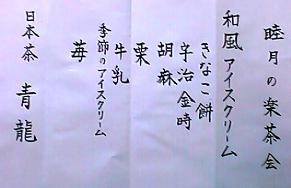 睦月の楽茶会
和風アイスクリーム
きなこ餅
宇治金時
胡麻
栗
牛乳
季節のアイスクリーム
苺
日本茶 青龍